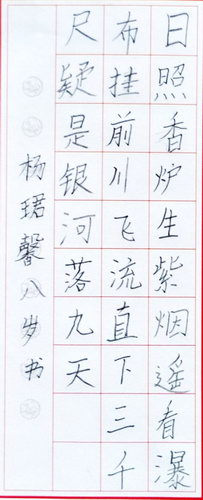 日照香炉生紫烟遥看瀑
布挂前川飞流直下三千
尺疑是银河落九天
杨珺馨八岁书